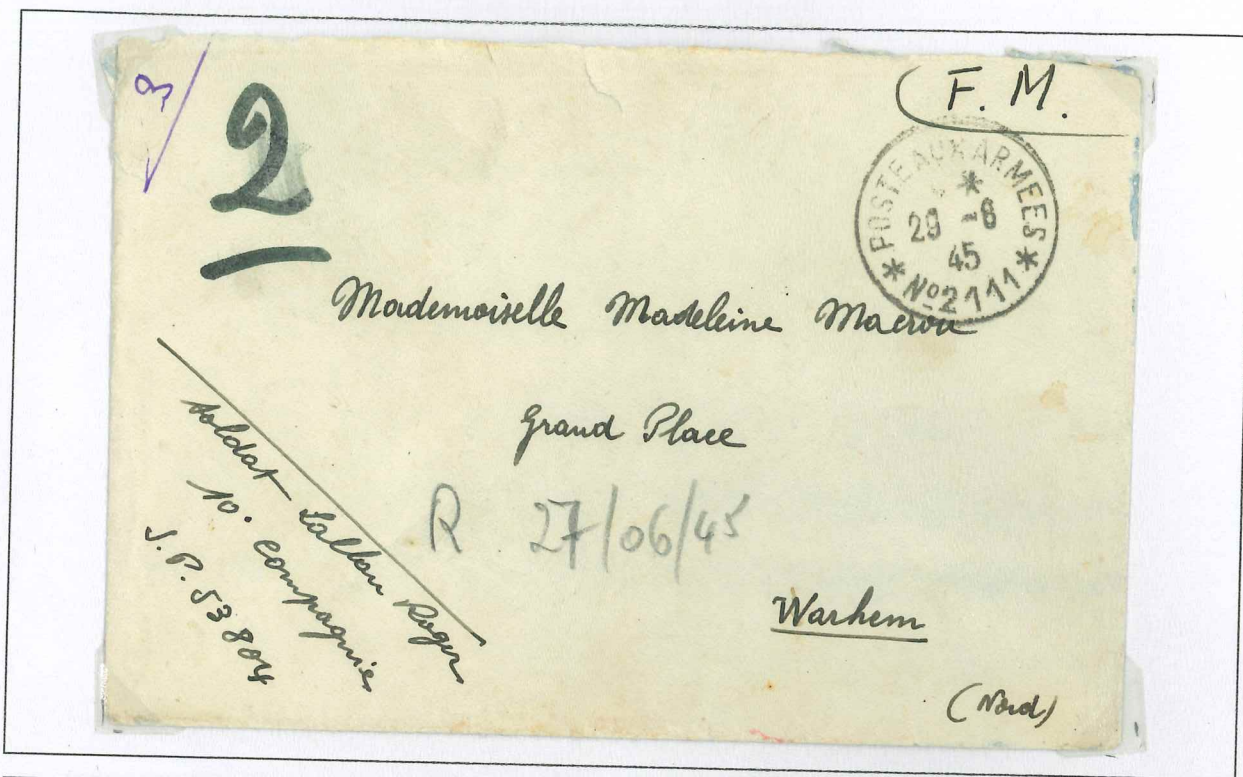 3
2
F. M.
POSTE AUX ARMEES
29 -6
45
* Nº 2111 *
Mademoiselle Madeleine
Grand Place
R 27/06/45
Warhem
(Nord)
Soldat Roger
10. compagnie
S.P. 53 804